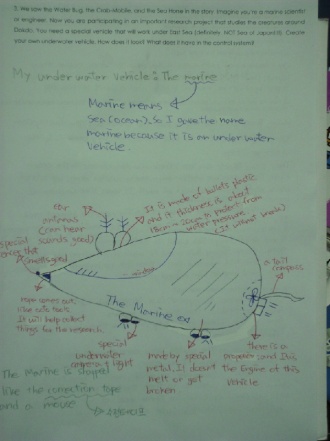 3. We saw the Water Bug, the Crab-Mobile, and the Sea Home in the story. Imagine you're a marine scientist
or engineer. Now you are participating in an important research project that studies the creatures around
Dokdo. You need a special vehicle that will work under East Sea (definitely NOT Sea of Japan!!!). Create
your own underwater vehicle. How does it look? What does it have in the control system?
My under water vehicle : The marine
Marine means
Sea (ocean). So I gave the name
marine because it is an under water
Vehicle.
ear
antennas
(can hear
sounds good)
It is made of bullets
and it thickness is
protect from
water pressure
special
that
melts good
window
a tail
compass
rope comes out,
like
It will help collect
Things for the research.
The Marine
special
underwater
light
made by special
metal. It doesnt
melt or get
broken
there is a
propeller and It is
the Engine of this
Vehicle
The Marine is shaped
like the correction tape
and a mouse